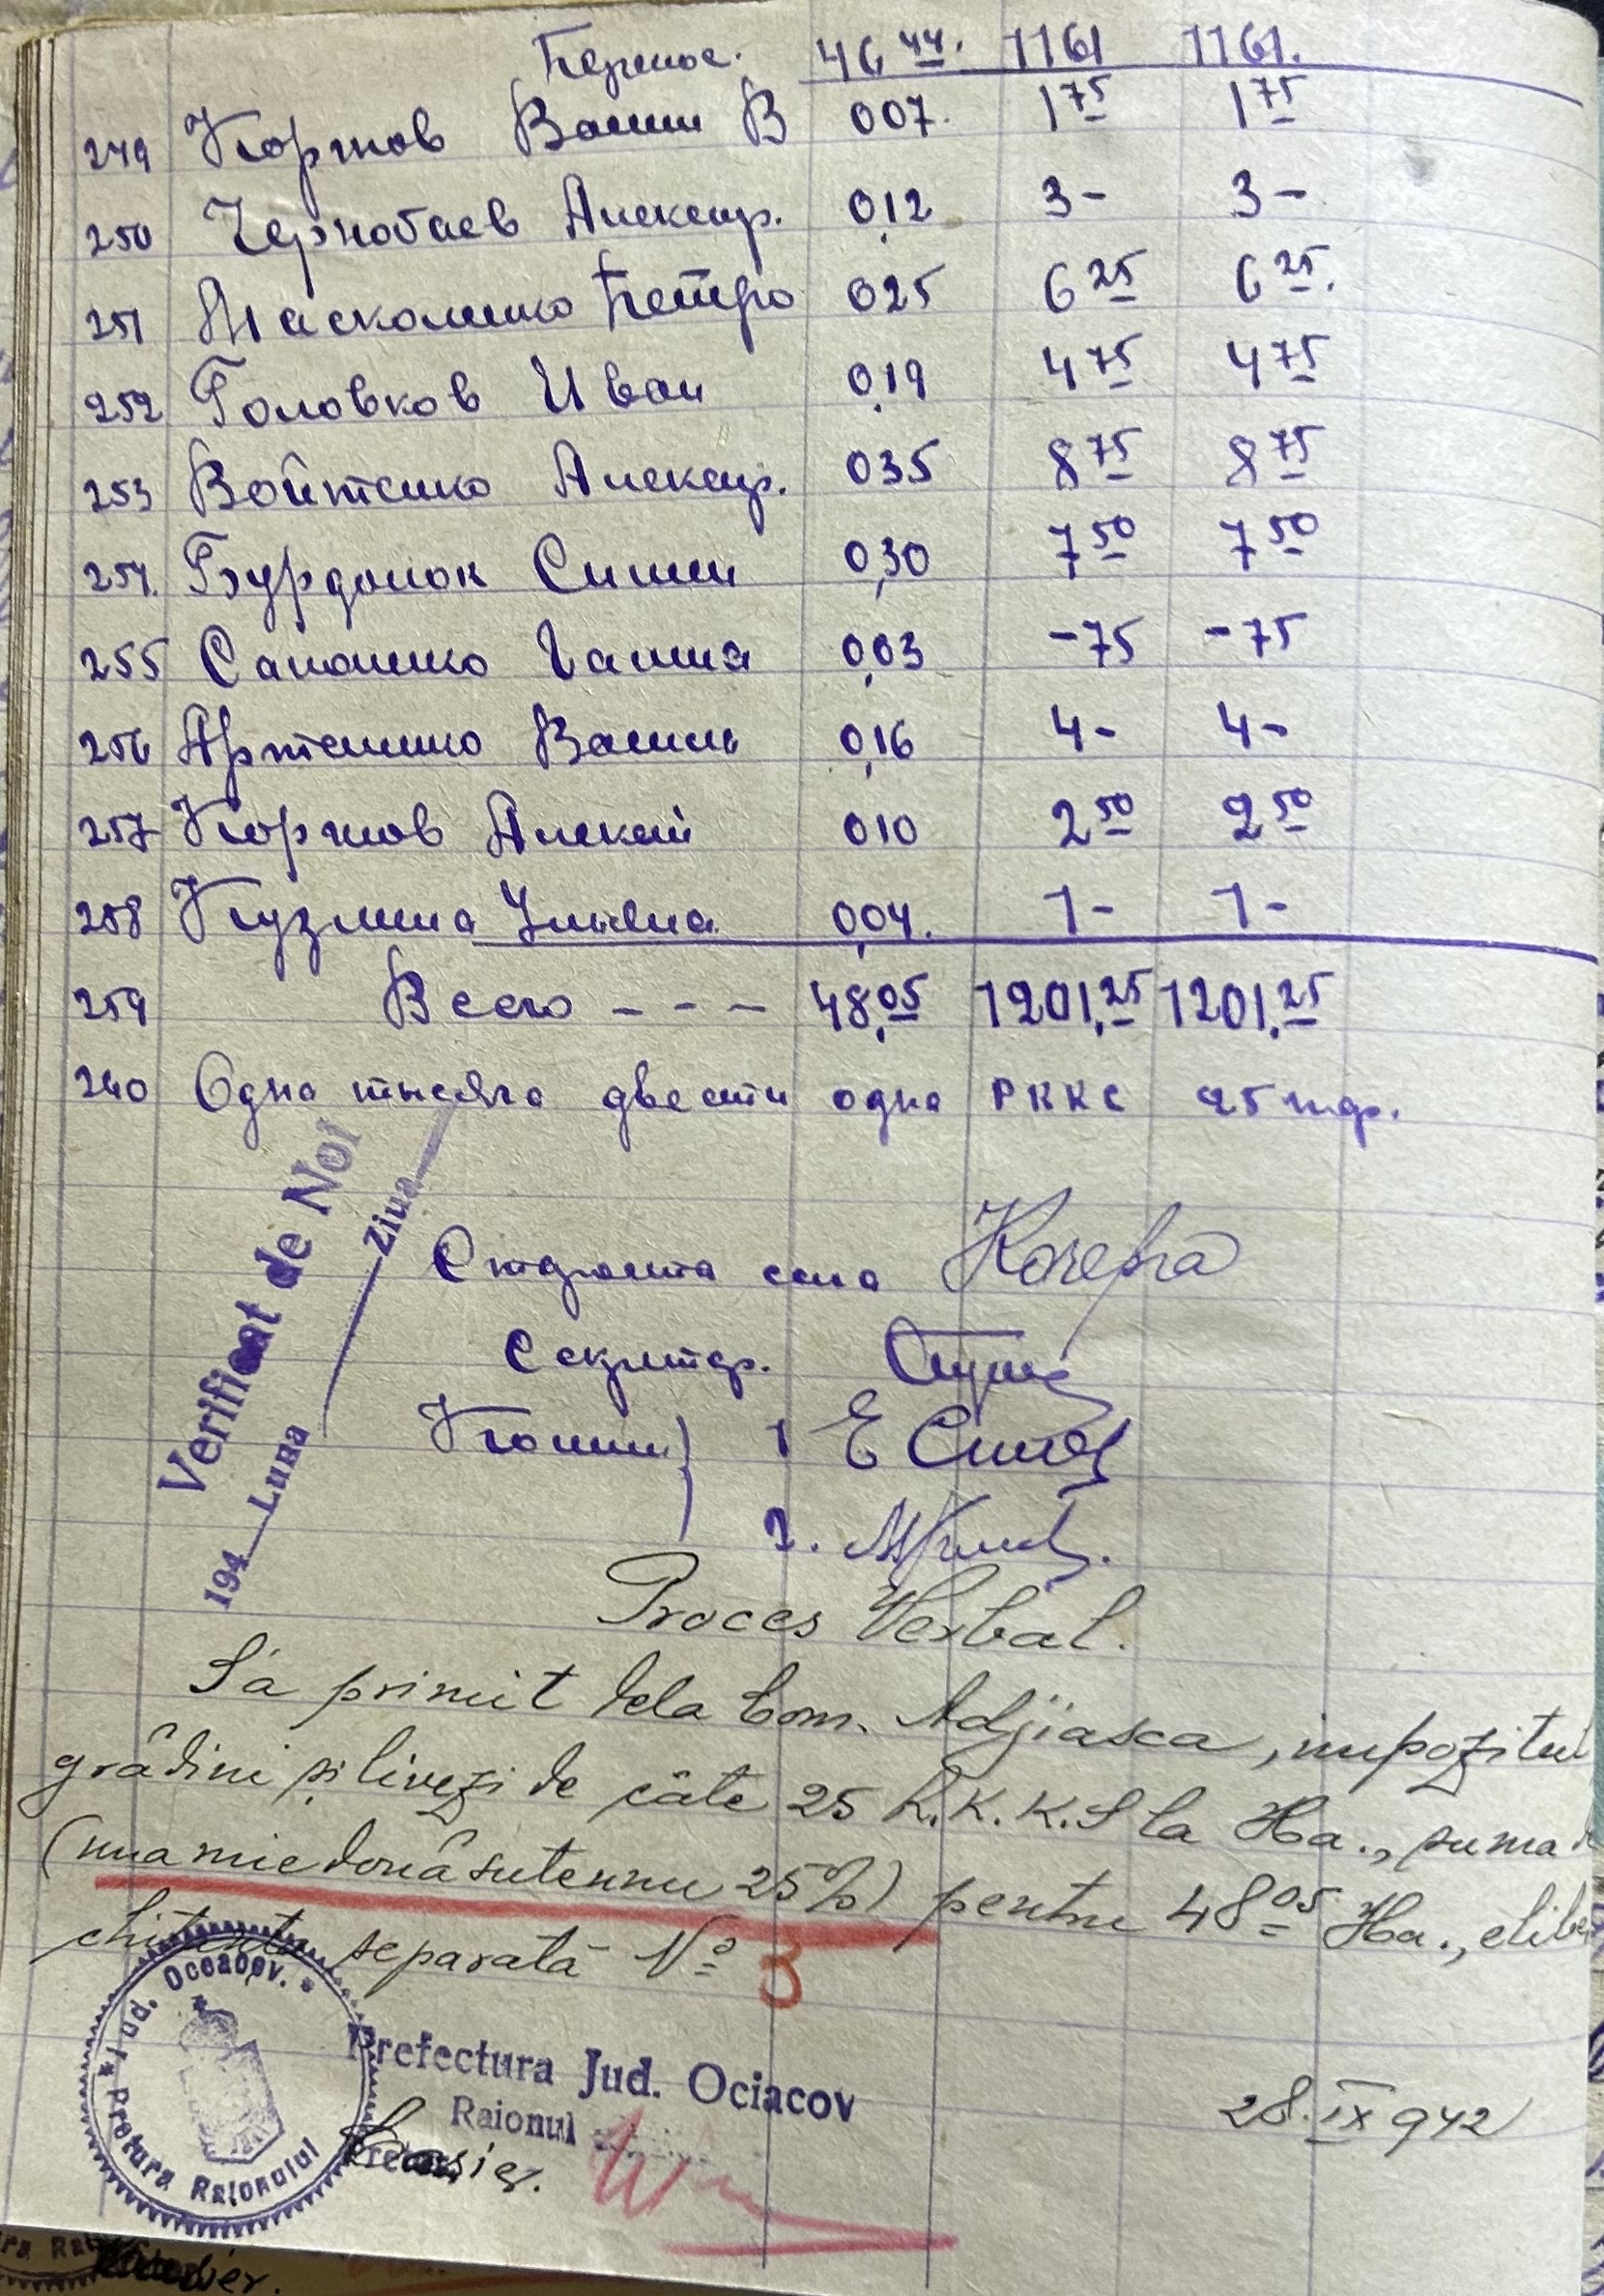 Перенос. 46,44. 1161 1161.
249 Коржов Васили В 007. 1 75 1 75
250 Чернобаев Александр. 0,12 3- 3-
251 Москаленко Петро 025 6 25 6 25.
252 Головков Иван 0,19 4 75 4 75
253 Войтенко Александр. 035 8 75 8 75
254. Бурдонок Симон 0,30 7 50 7 50
255 Сапоненко Ганна 0,03 -75 -75
256 Артеменко Василь 0,16 4- 4-
257 Коржов Алексей 010 2 50 2 50
258 Кузмина Ульяна 0,04. 1- 1-
259 Всего - - - 48,05 1201,25 1201,25
240 Одна тысяча двести одна РККС 25 пф.
Verificat de Noi
194 Luna Ziua
Староста села
Секретар.
Комис } 1 Е
2.
Proces Verbal.
S'a primit dela Com. Adjiasca, impozitul
grădini și livezi de câte 25 R.K.K.S la Ha., suma
(una mie două sute unu 25%) pentru 48 05 Ha., elibe
chitanta separată No 3
Jud. Oceacov. * Pretura Raionului *
Prefectura Jud. Ociacov
Raionul
Casier.
28.IX 942